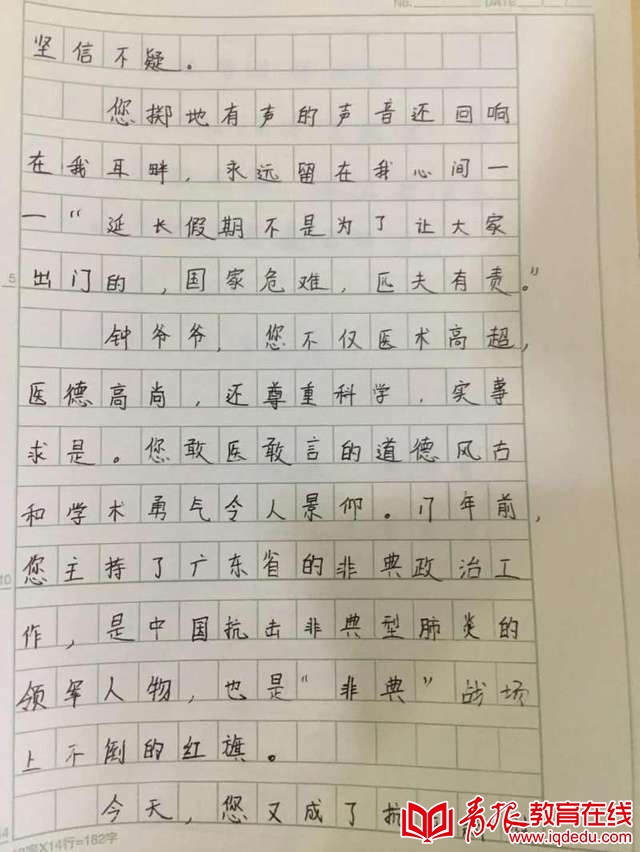 NO. DATE
坚信不疑。
您掷地有声的声音还回响
在我耳畔，永远留在我心间一
一“延长假期不是为了让大家
5
出门的，国家危难，匹夫有责。”
钟爷爷，您不仅医术高超，
医德高尚，还尊重科学，实事
求是。您敢医敢言的道德风古
和学术勇气令人景仰。17年前，
10
您主持了广东省的非典政治工
作，是中国抗击非典型肺炎的
领军人物，也是“非典”战场
上不倒的红旗。
今天，您又成了抗
14
X14行=182字
青报教育在线
www.iqdedu.com